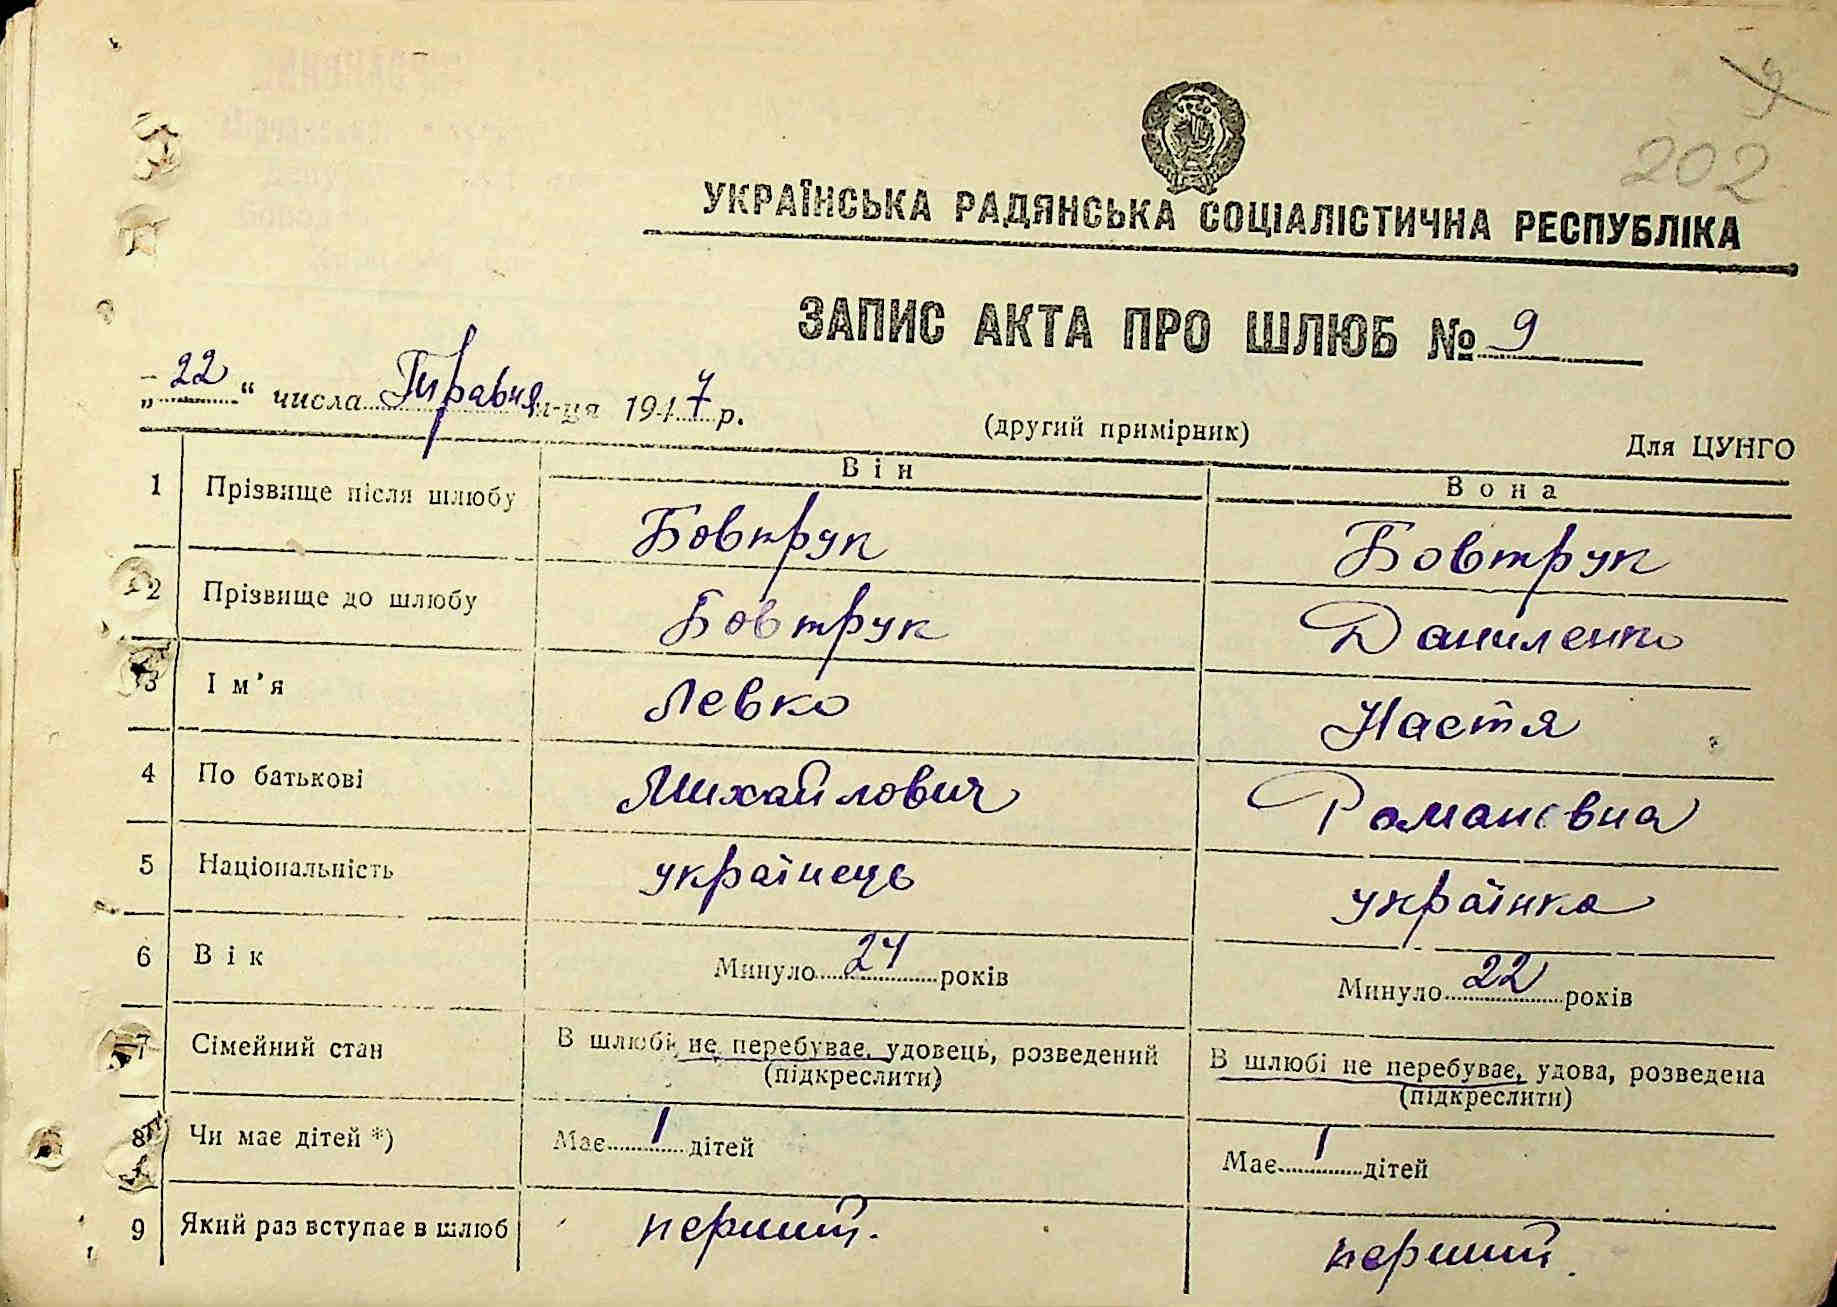 202
УКРАЇНСЬКА РАДЯНСЬКА СОЦІАЛІСТИЧНА РЕСПУБЛІКА
ЗАПИС АКТА ПРО ШЛЮБ № 9
„22“ числа Травня м-ця 1947 р.
(другий примірник)
Для ЦУНГО
Він Вона
1 Прізвище після шлюбу Бовтрук Бовтрук
2 Прізвище до шлюбу Бовтрук Даниленко
3 Ім'я Левко Настя
4 По батькові Михайлович Романовна
5 Національність українець українка
6 Вік Минуло 24 років Минуло 22 років
7 Сімейний стан В шлюбі не перебуває, удовець, розведений В шлюбі не перебуває, удова, розведена
(підкреслити) (підкреслити)
8 Чи має дітей *) Має 1 дітей Має 1 дітей
9 Який раз вступає в шлюб перший. перший.